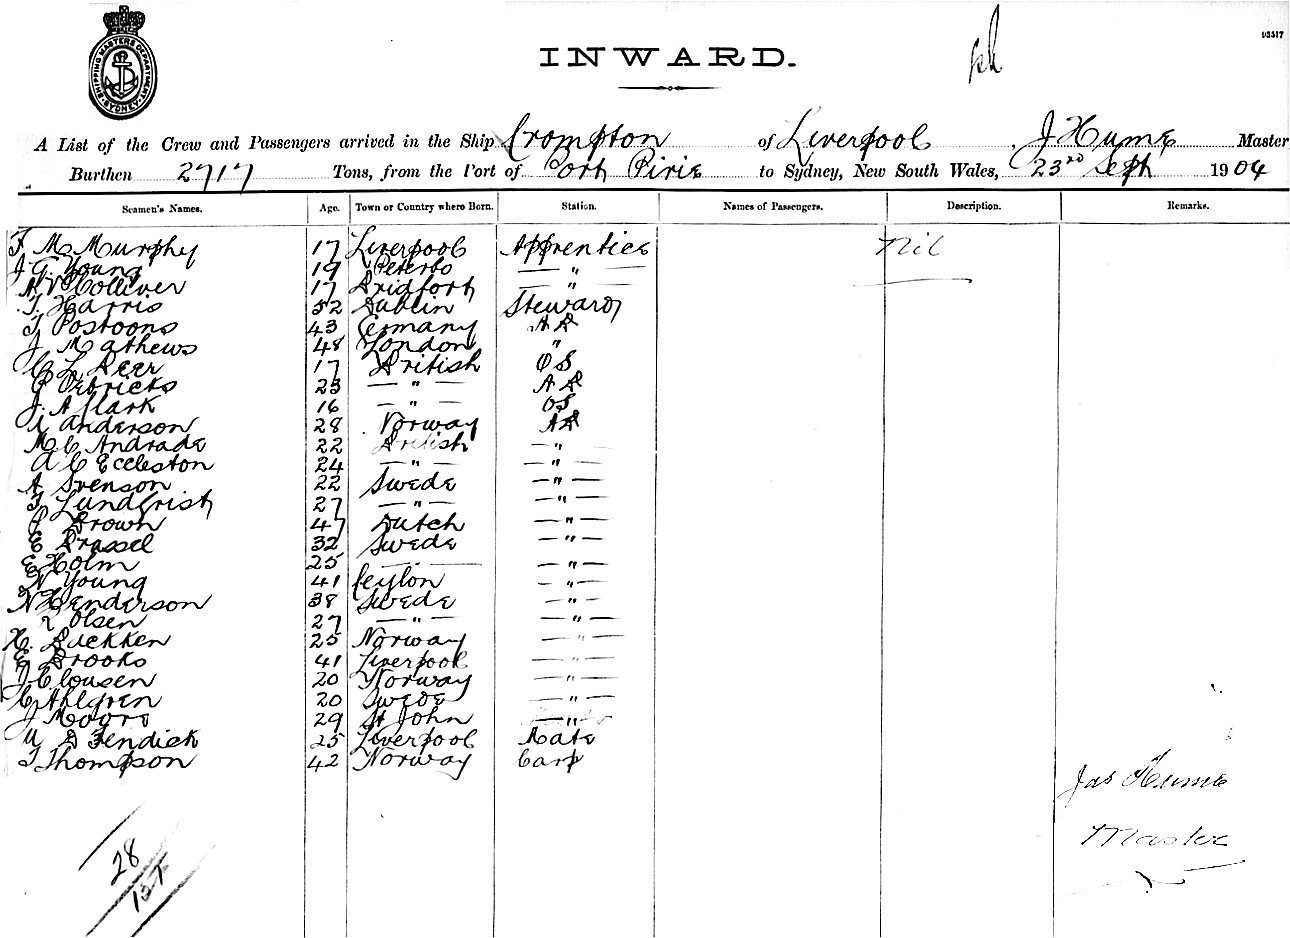 SHIPPING MASTERS DEPARTMENT SYDNEY
93517
INWARD.
A List of the Crew and Passengers arrived in the Ship Crompton of Liverpool, J Hume Master
Burthen 2717 Tons, from the Port of Port Pirie to Sydney, New South Wales, 23rd Sept 1904
Seamen's Names. Age. Town or Country where Born. Station. Names of Passengers. Description. Remarks.
F Mc Murphy 17 Liverpool Apprentice Nil
J. G. Young 19 Peterbo — " —
17 Bridport — " —
T. Harris 52 Dublin Steward
T Postoons 43 Germany AB
J Mathews 48 London "
C L Beer 17 British OS
P Oebricks 23 — " — AB
J. A Clark 16 — " — OS
A Anderson 28 Norway AB
M C Andrade 22 British — " —
A C Eccleston 24 — " — — " —
A Svenson 22 Swede — " —
F Lundqrist 27 — " — — " —
P Brown 47 Dutch — " —
E Brassel 32 Swede — " —
E Holm 25 — " — — " —
N Young 41 Ceylon — " —
N Henderson 38 Swede — " —
L Olsen 27 — " — — " —
H. Backken 25 Norway — " —
E Brooks 41 Liverpool — " —
J Clousen 20 Norway — " —
C Ahlgren 20 Swede — " —
J Moore 29 St John — " —
W B Fendick 25 Liverpool Mate
T Thompson 42 Norway Carp
Jas Hume
Master
28